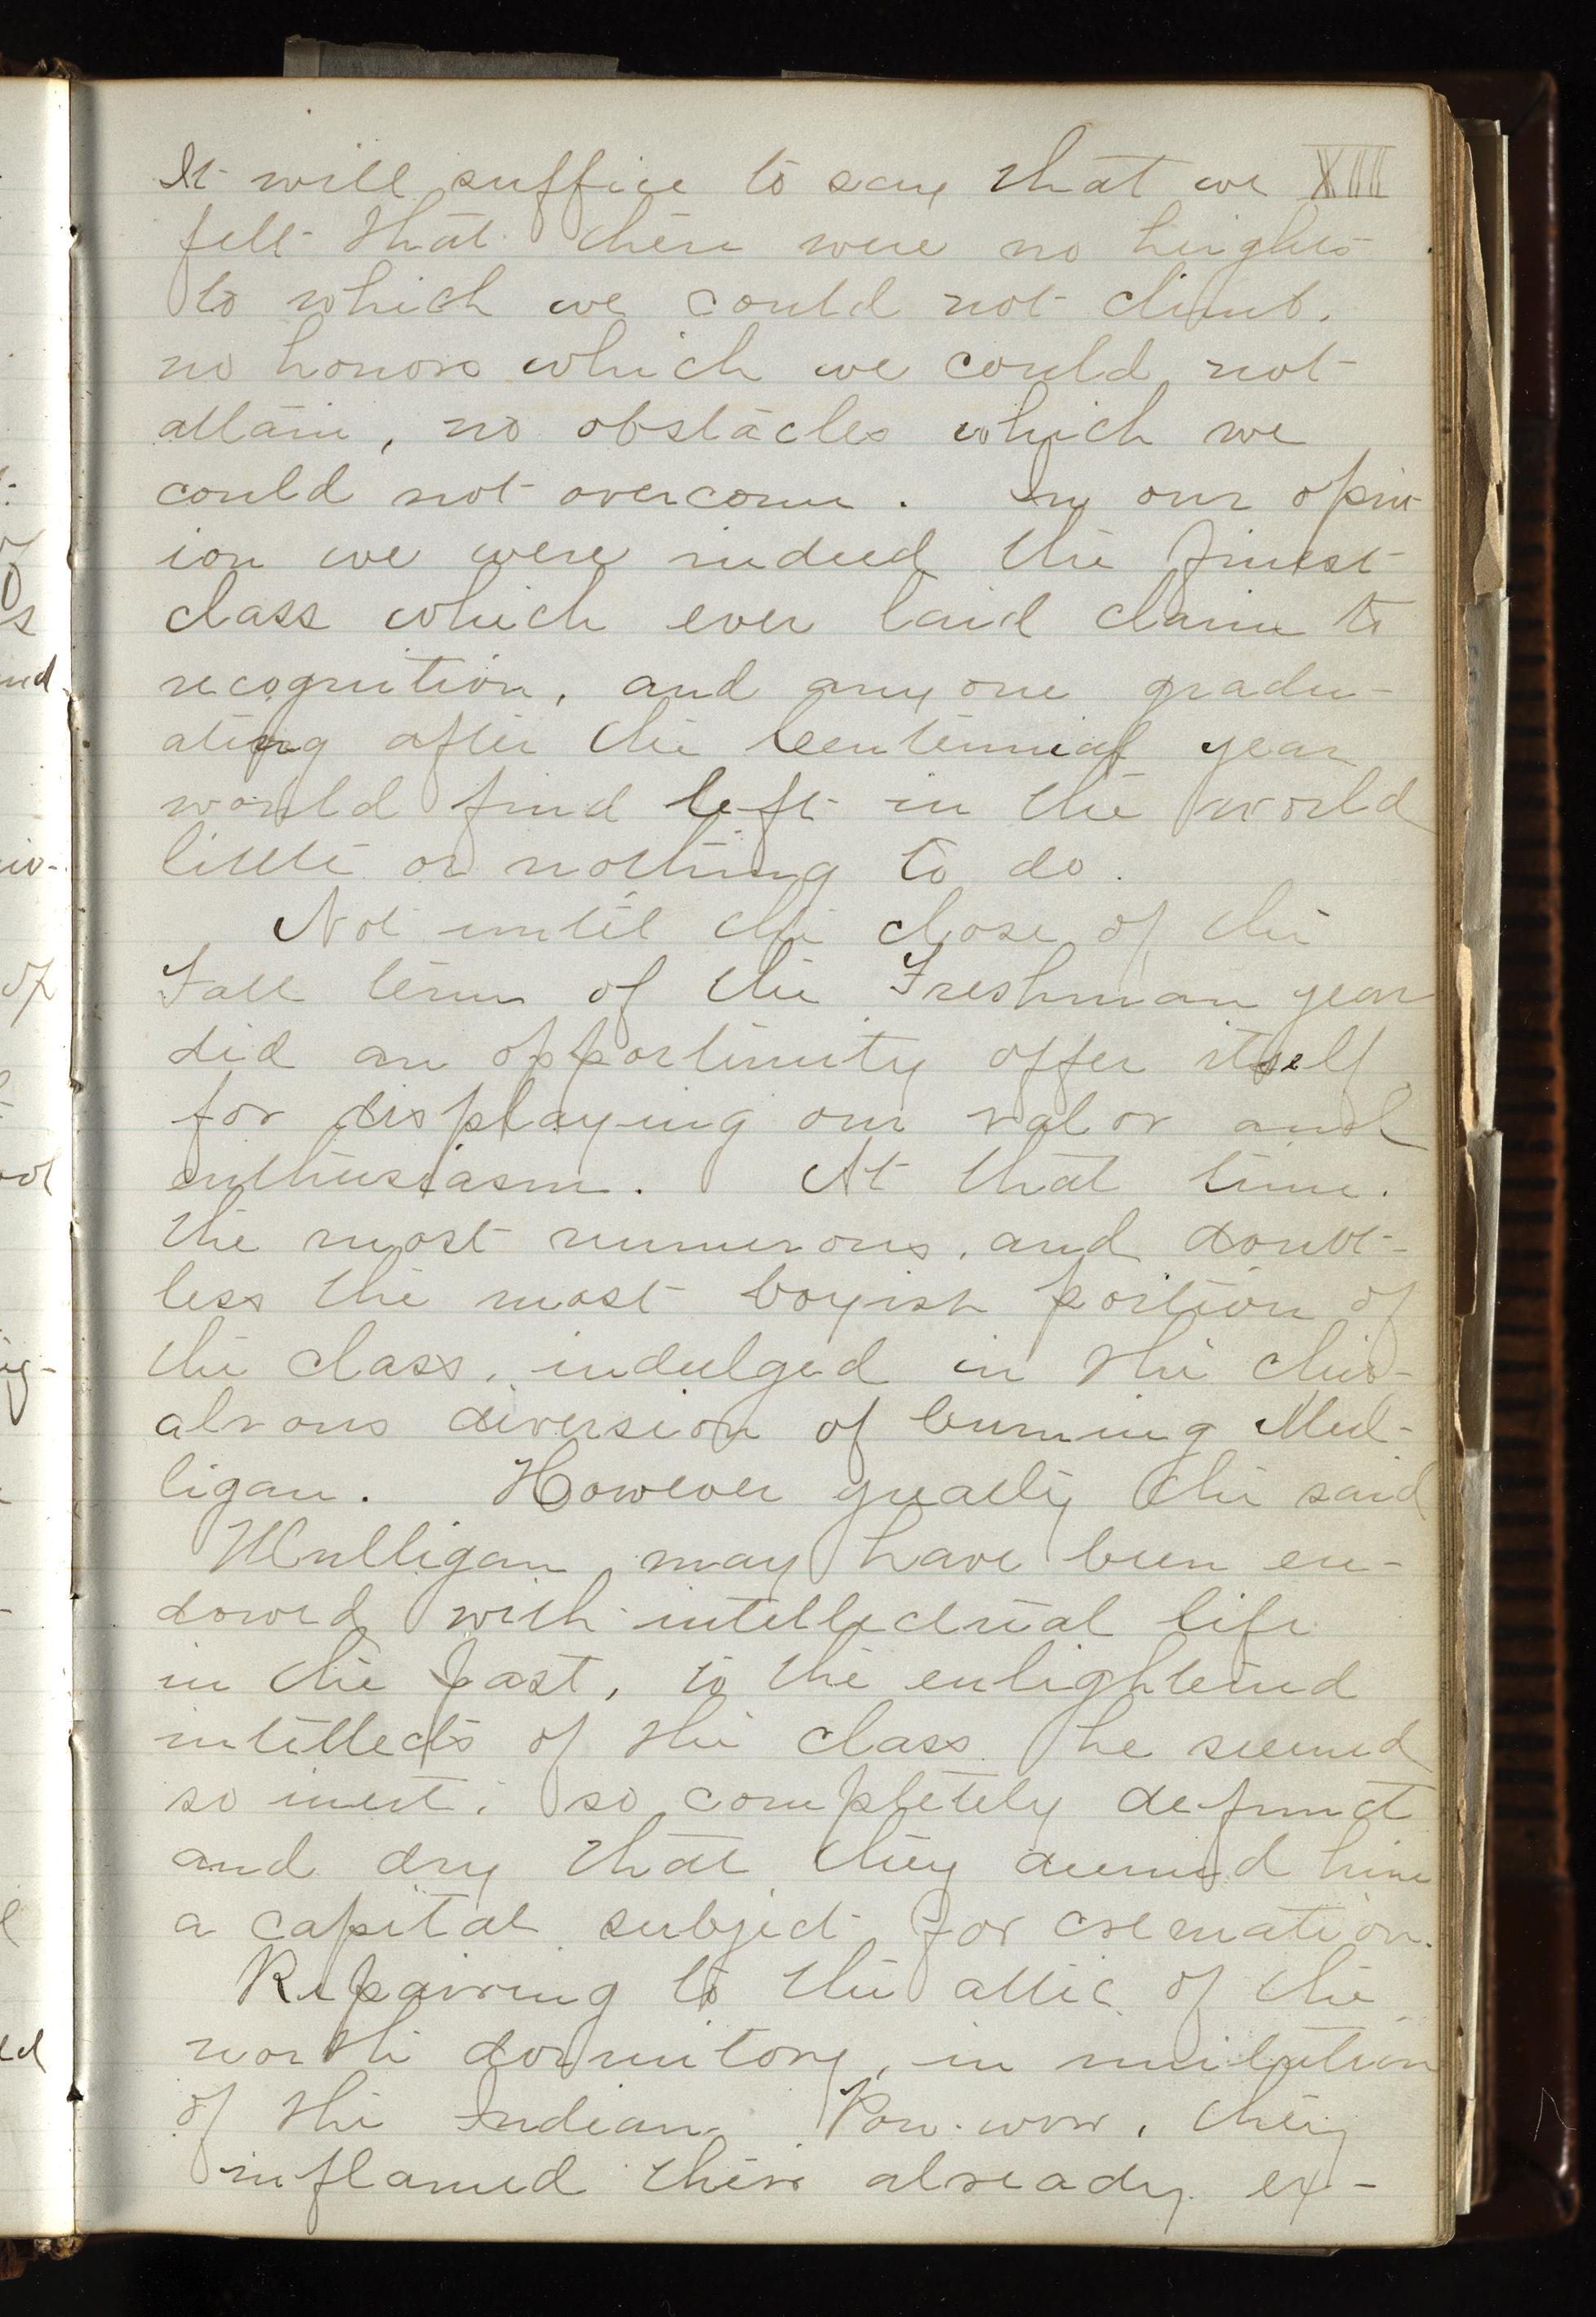 It will suffice to say that we XIII
felt that there were no heights
to which we could not climb,
no honors which we could not
attain, no obstacles which we
could not overcome. In our opin-
ion we were indeed the finest
class which ever laid claim to
recognition, and any one gradu-
ating after the Centennial year
would find left in the world
little or nothing to do.
Not until the close of the
Fall term of the Freshman year
did an opportunity offer itself
for displaying our valor and
enthusiasm. At that time,
the most numerous, and doubt-
less the most boyish portion of
the class, indulged in the chiv-
alrous diversion of burning Mul-
ligan. However greatly the said
Mulligan may have been en-
dowed with intellectual life
in the past, to the enlightened
intellects of the class he seemed
so inert, so completely defunct
and dry that they deemed him
a capital subject for cremation.
Repairing to the attic of the
north dormitory, in imitation
of the Indian Pow-wow, they
inflamed their already ex-